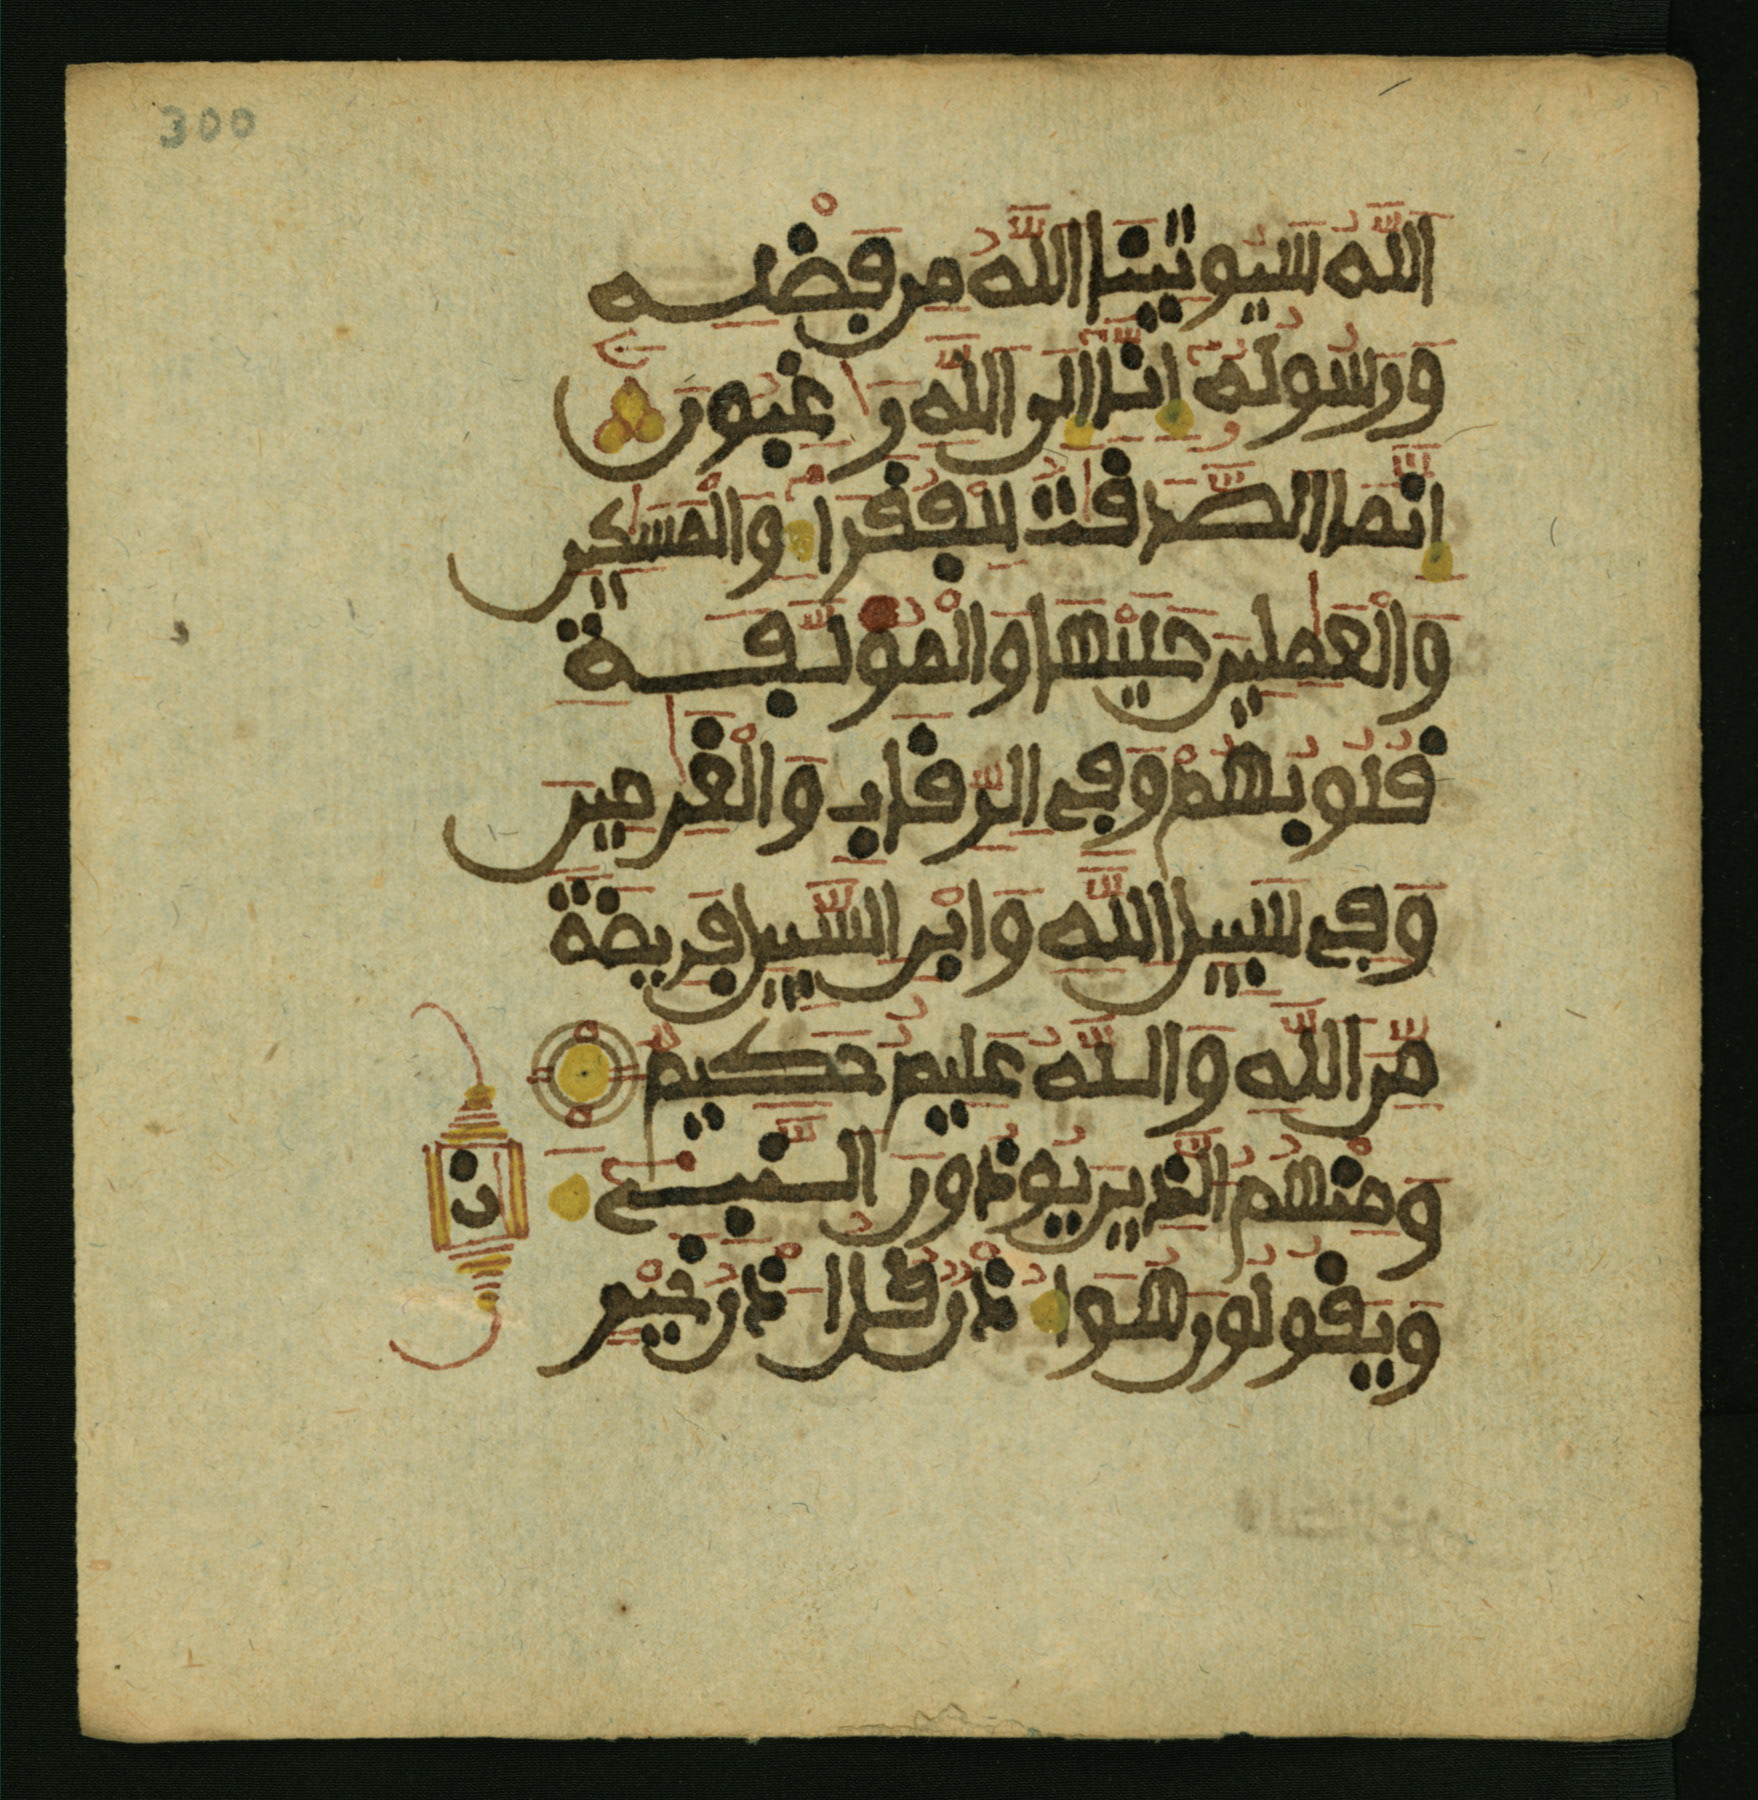 300
اللَّهُ سَيُوتِينَا اللَّهُ مِن فَضْلِهِ
وَرَسُولُهُ إِنَّا إِلَى اللَّهِ رَاغِبُونَ
إِنَّمَا الصَّدَقَاتُ لِلْفُقَرَاءِ وَالْمَسَاكِينِ
وَالْعَامِلِينَ عَلَيْهَا وَالْمُؤَلَّفَةِ
قُلُوبُهُمْ وَفِي الرِّقَابِ وَالْغَارِمِينَ
وَفِي سَبِيلِ اللَّهِ وَابْنِ السَّبِيلِ فَرِيضَةً
مِّنَ اللَّهِ وَاللَّهُ عَلِيمٌ حَكِيمٌ
ن
وَمِنْهُمُ الَّذِينَ يُوذُونَ النَّبِيءَ
وَيَقُولُونَ هُوَ أُذْنٌ قُلْ أُذْنُ خَيْرٍ